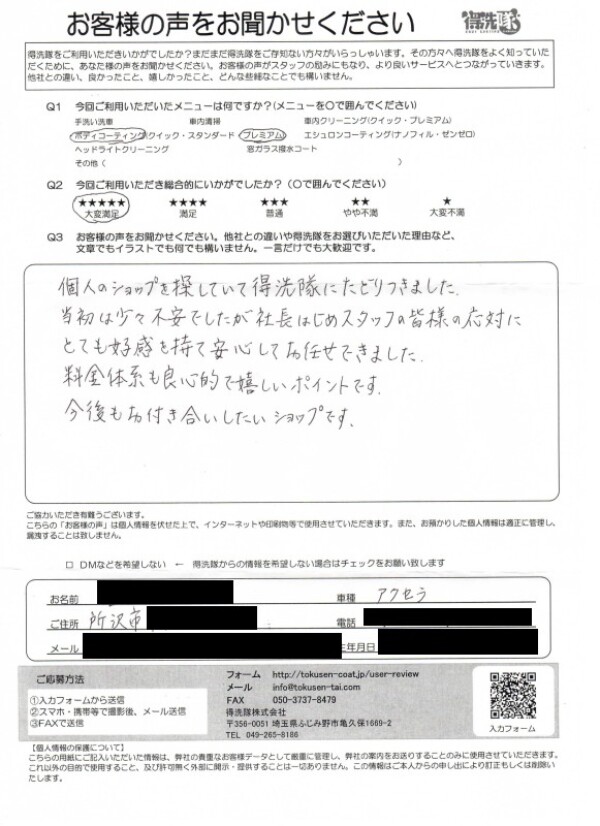 お客様の声をお聞かせください
得洗隊
得洗隊をご利用いただきいかがでしたか?まだまだ得洗隊をご存知ない方々がいらっしゃいます。その方々へ得洗隊をよく知っていた
だくために、あなた様の声をお聞かせください。お客様の声がスタッフの励みにもなり、より良いサービスへとつながっていきます。
他社との違い、良かったこと、嬉しかったこと、どんな些細なことでも構いません。
Q1 今回ご利用いただいたメニューは何ですか?(メニューを〇で囲んでください)
手洗い洗車 車内清掃 車内クリーニング(クイック・プレミアム)
ボディコーティング(クイック・スタンダード・プレミアム) エシュロンコーティング(ナノフィル・ゼンゼロ)
ヘッドライトクリーニング 窓ガラス撥水コート
その他( )
Q2 今回ご利用いただき総合的にいかがでしたか?(〇で囲んでください)
★★★★★ ★★★★ ★★★ ★★ ★
大変満足 満足 普通 やや不満 大変不満
Q3 お客様の声をお聞かせください。他社との違いや得洗隊をお選びいただいた理由など、
文章でもイラストでも何でも構いません。一言だけでも大歓迎です。
個人のショップを探していて得洗隊にたどりつきました.
当初は少々不安でしたが社長はじめスタッフの皆様の応対に
とても好感を持て安心してお任せできました.
料金体系も良心的で嬉しいポイントです.
今後もお付き合いしたいショップです.
ご協力いただき有難うございます。
こちらの「お客様の声」は個人情報を伏せた上で、インターネットや印刷物等で使用させていただきます。また、お預かりした個人情報は適正に管理し、
漏洩することは致しません。
□ DMなどを希望しない ← 得洗隊からの情報を希望しない場合はチェックをお願い致します
お名前 車種 アクセラ
ご住所 所沢市 電話
メール 年月日
ご応募方法
①入力フォームから送信
②スマホ・携帯等で撮影後、メール送信
③FAXで送信
フォーム http://tokusen-coat.jp/user-review
メール info@tokusen-tai.com
FAX 050-3737-8479
得洗隊株式会社
〒356-0051 埼玉県ふじみ野市亀久保1669-2
TEL 049-265-8186
入力フォーム
【個人情報の保護について】
こちらの用紙にご記入いただいた情報は、弊社の貴重なお客様データとして厳重に管理し、弊社の案内をお送りすることのみに使用させていただきます。
これ以外の目的で使用すること、及び許可無く外部に開示・提供することは一切ありません。この情報はご本人からの申し出により訂正もしくは削除い
たします。